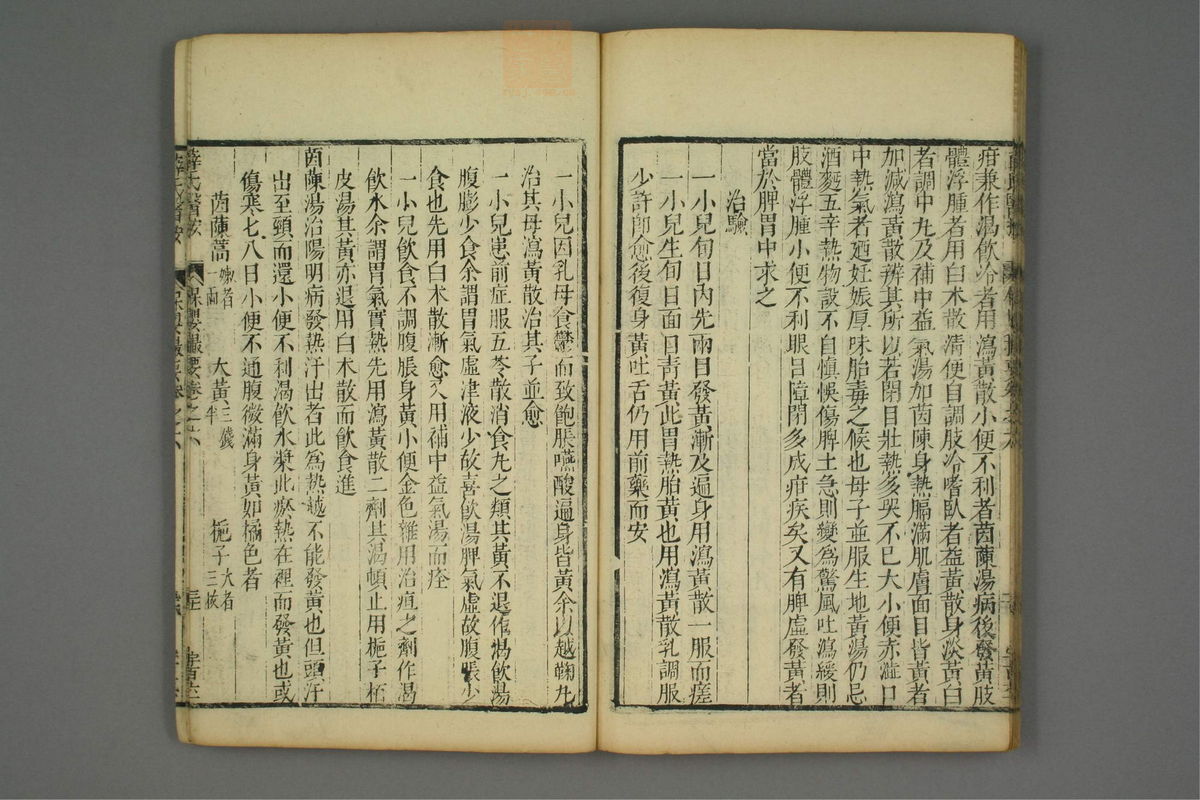 疳兼作渴飲冷者用瀉黃散小便不利者茵蔯湯病後發黃肢
體浮腫者用白术散清便自調肢冷嗜臥者益黃散身淡黃白
者調中丸及補中益氣湯加茵陳身熱膈滿肌膚面目皆黃者
加減瀉黃散辨其所以若閉目壯熱多哭不已大小便赤澁口
中熱氣者廼妊娠厚味胎毒之候也母子並服生地黃湯仍忌
酒麪五辛熱物設不自愼悞傷脾土急則變為驚風吐瀉緩則
肢體浮腫小便不利眼目障閉多成疳疾矣又有脾虛發黃者
當於脾胃中求之
治驗
一小兒旬日內先兩目發黃漸及遍身用瀉黃散一服而瘥
一小兒生旬日面目青黃此胃熱胎黃也用瀉黃散乳調服
少許卽愈後復身黃吐舌仍用前藥而安
一小兒因乳母食鬱而致飽脹嚥酸遍身皆黃余以越鞠丸
治其母瀉黃散治其子並愈
一小兒患前症服五苓散消食丸之類其黃不退作渴飲湯
腹膨少食余謂胃氣虛津液少故喜飲湯脾氣虛故腹脹少
食也先用白术散漸愈又用補中益氣湯而痊
一小兒飲食不調腹脹身黃小便金色雜用治疸之劑作渴
飲水余謂胃氣實熱先用瀉黃散二劑其渴頓止用梔子栢
皮湯其黃亦退用白术散而飲食進
茵蔯湯治陽明病發熱汗出者此為熱越不能發黃也但頭汗
出至頸而還小便不利渴飲水漿此瘀熱在裡而發黃也或
傷寒七八日小便不通腹微滿身黃如橘色者
茵蔯蒿嫩者一兩 大黃三錢半 梔子大者三枚
薛氏醫按 保嬰撮要卷之六